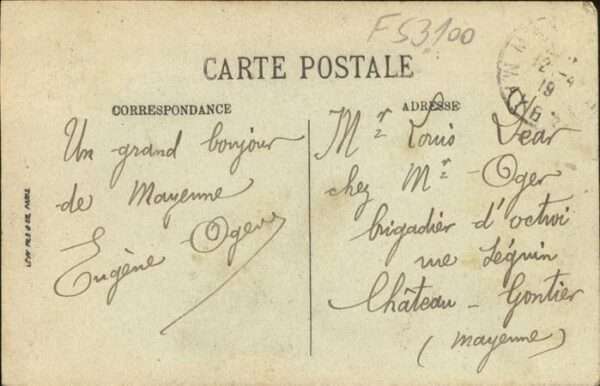 F 53100
CARTE POSTALE
CORRESPONDANCE
ADRESSE
Un grand bonjour
de Mayenne
Eugène Oger
Mr Louis Lear
chez Mr Oger
brigadier d'octroi
rue Séguin
Château-Gontier
(Mayenne)